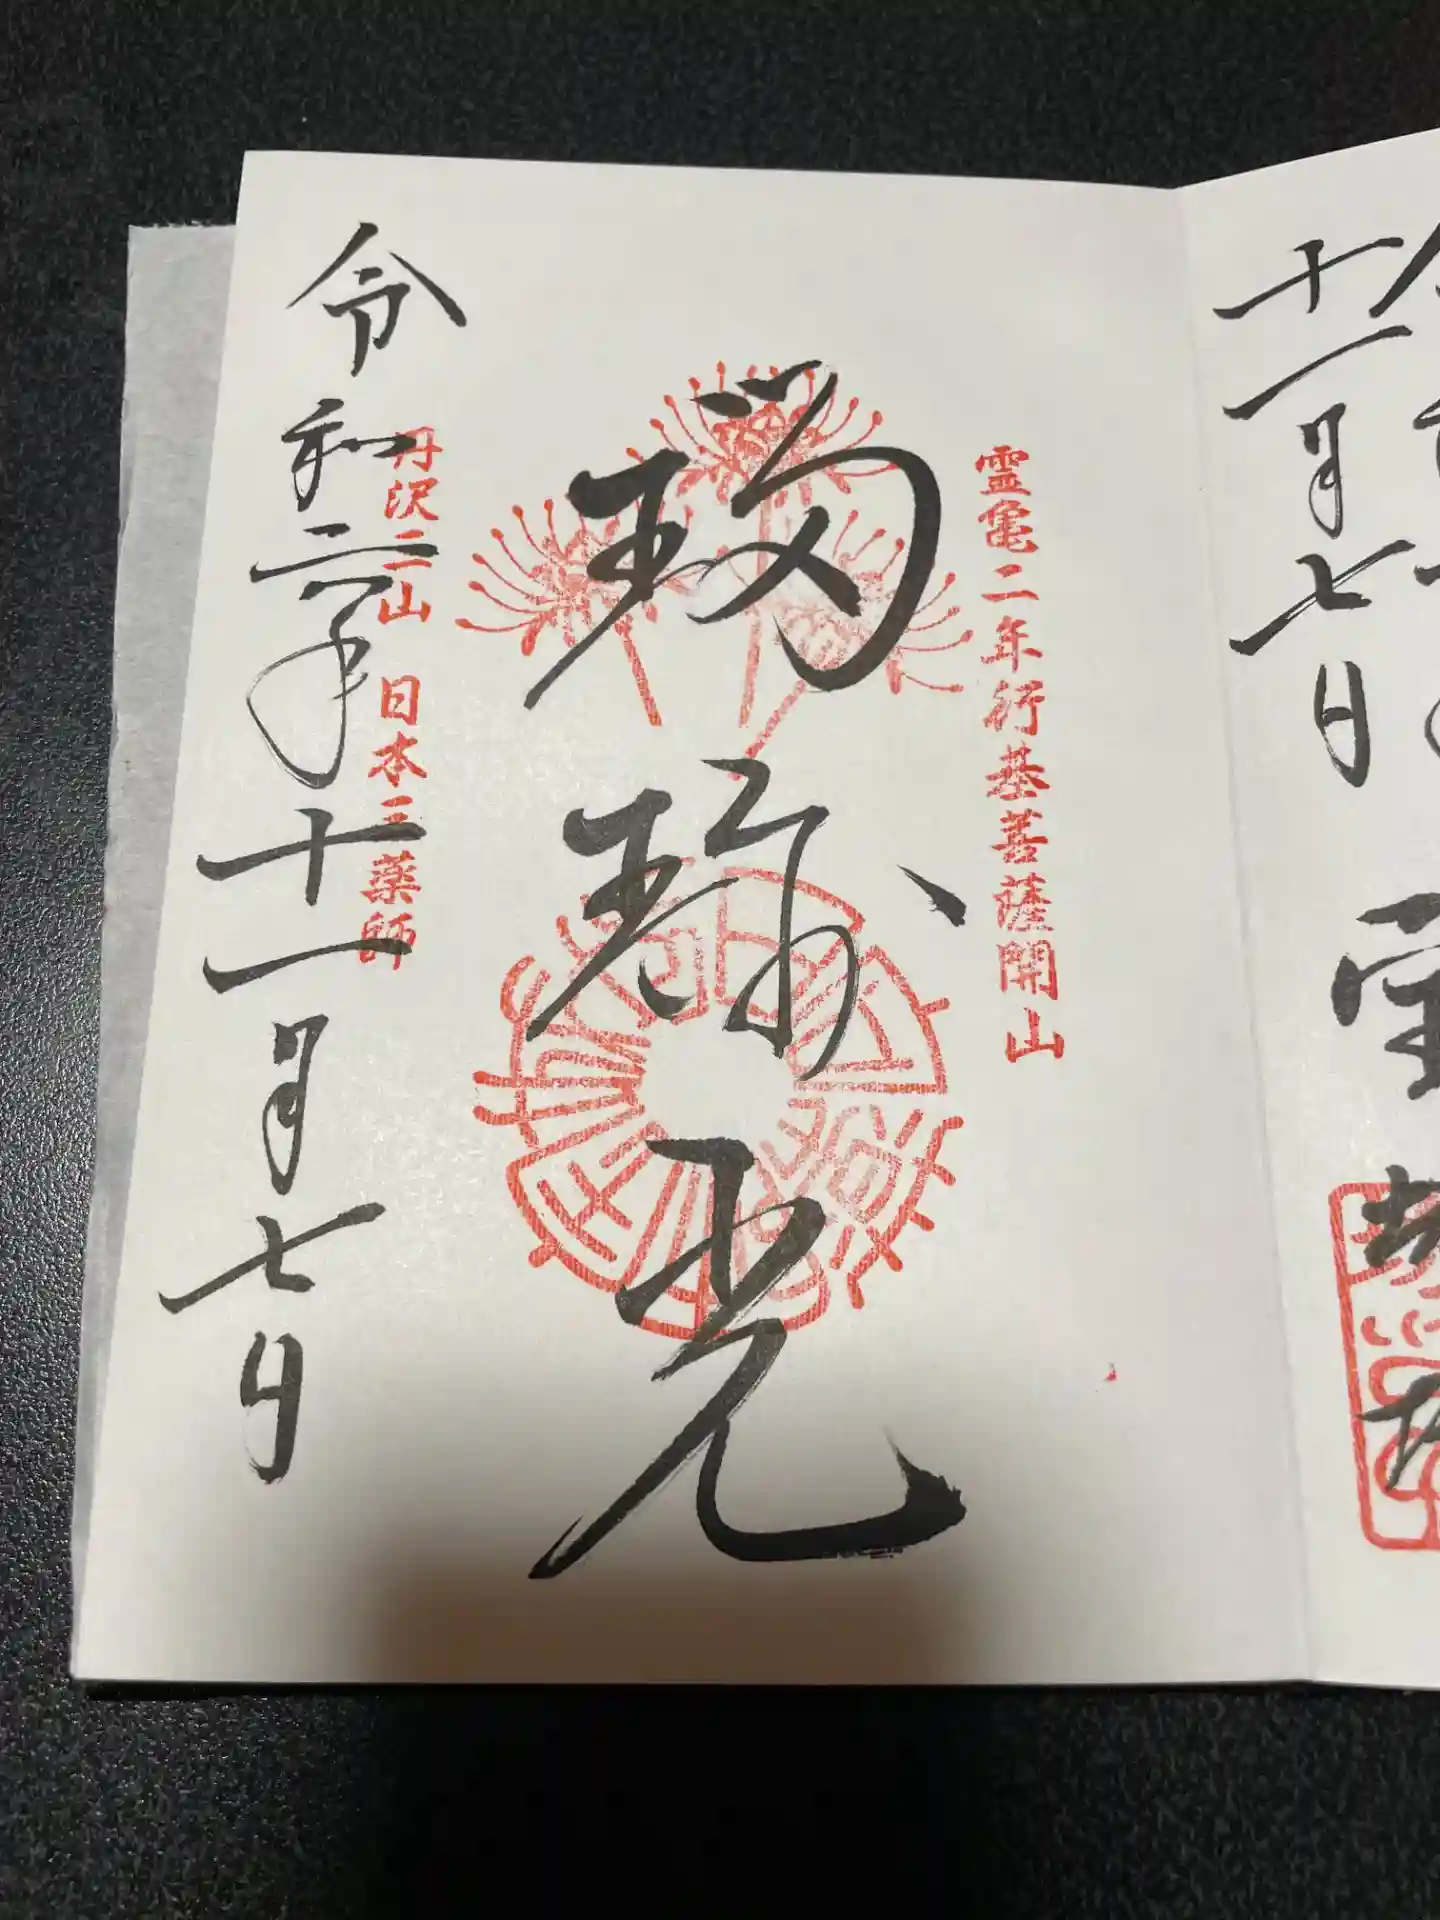 十一月七日
霊亀二年行基菩薩開山
瑠璃光
丹沢山 日本三薬師
令和年十一月七日